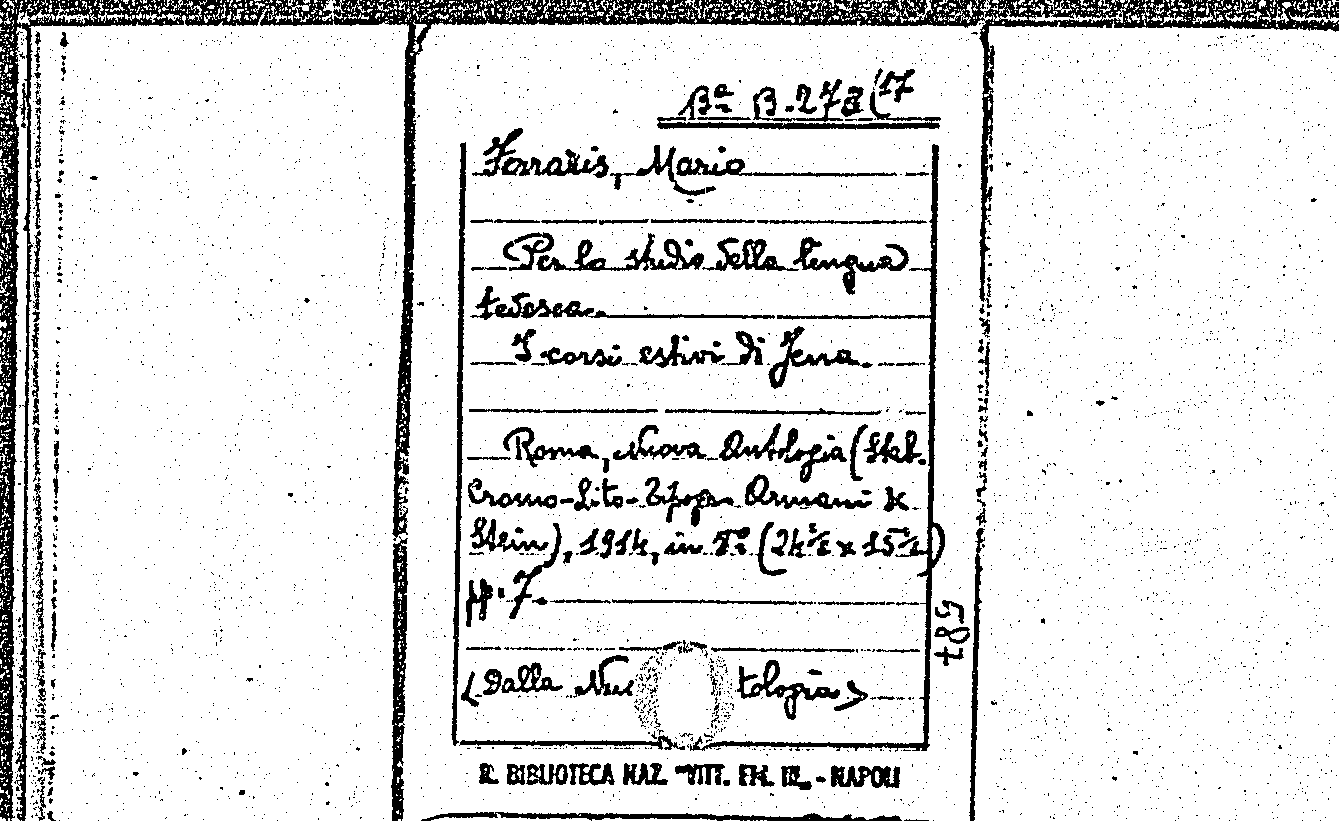 Bª B.27a(17
Ferraris, Mario
Per lo studio della lingua
tedesca.
I corsi estivi di Jena.
Roma, Nuova Antologia (Stab.
Cromo-Lito-Tipogr. Armani &
Stein), 1914, in 8º (24 x 15
pp. 7.
(Dalla Nu tologia)
R. BIBLIOTECA NAZ. "VITT. EM. III" - NAPOLI